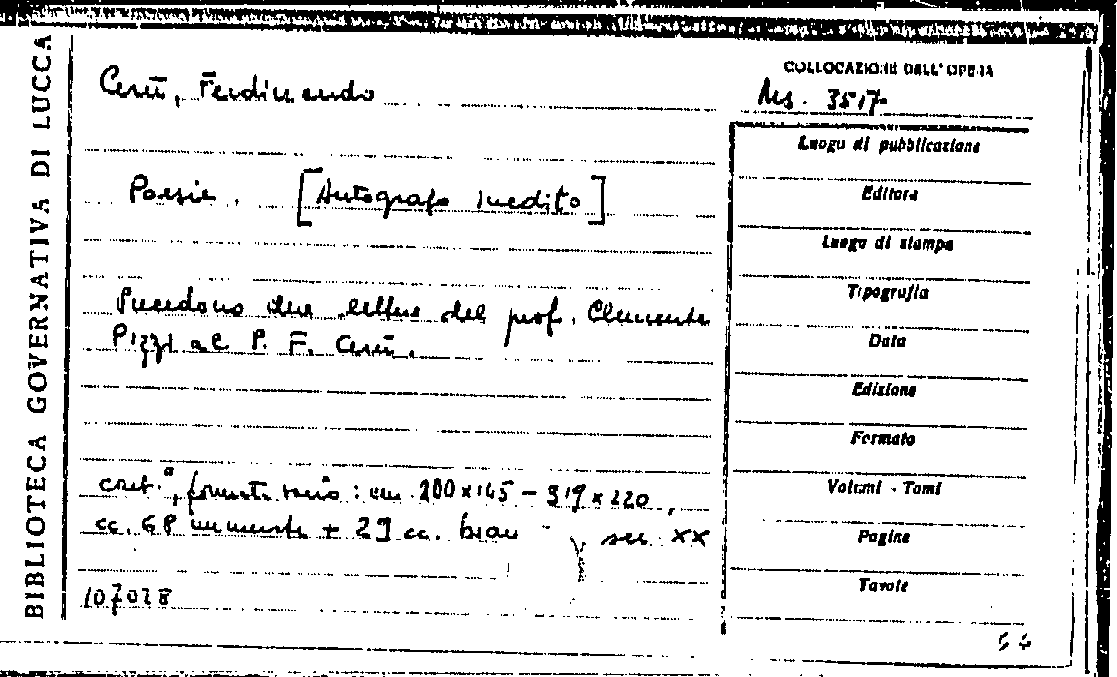 BIBLIOTECA GOVERNATIVA DI LUCCA
Cerù, Ferdinando
COLLOCAZIONE DELL'OPERA
Ms. 3517
Poesie. [Autografo inedito]
Precedono due lettere del prof. Clemente
Pizzi al P. F. Cerù.
cart.ª, formato vario: cm. 200x145 - 319x220,
cc. 68 numerate + 29 cc. bian , sec. XX
107028
Luogo di pubblicazione
Editore
Luogo di stampa
Tipografia
Data
Edizione
Formato
Volumi - Tomi
Pagine
Tavole